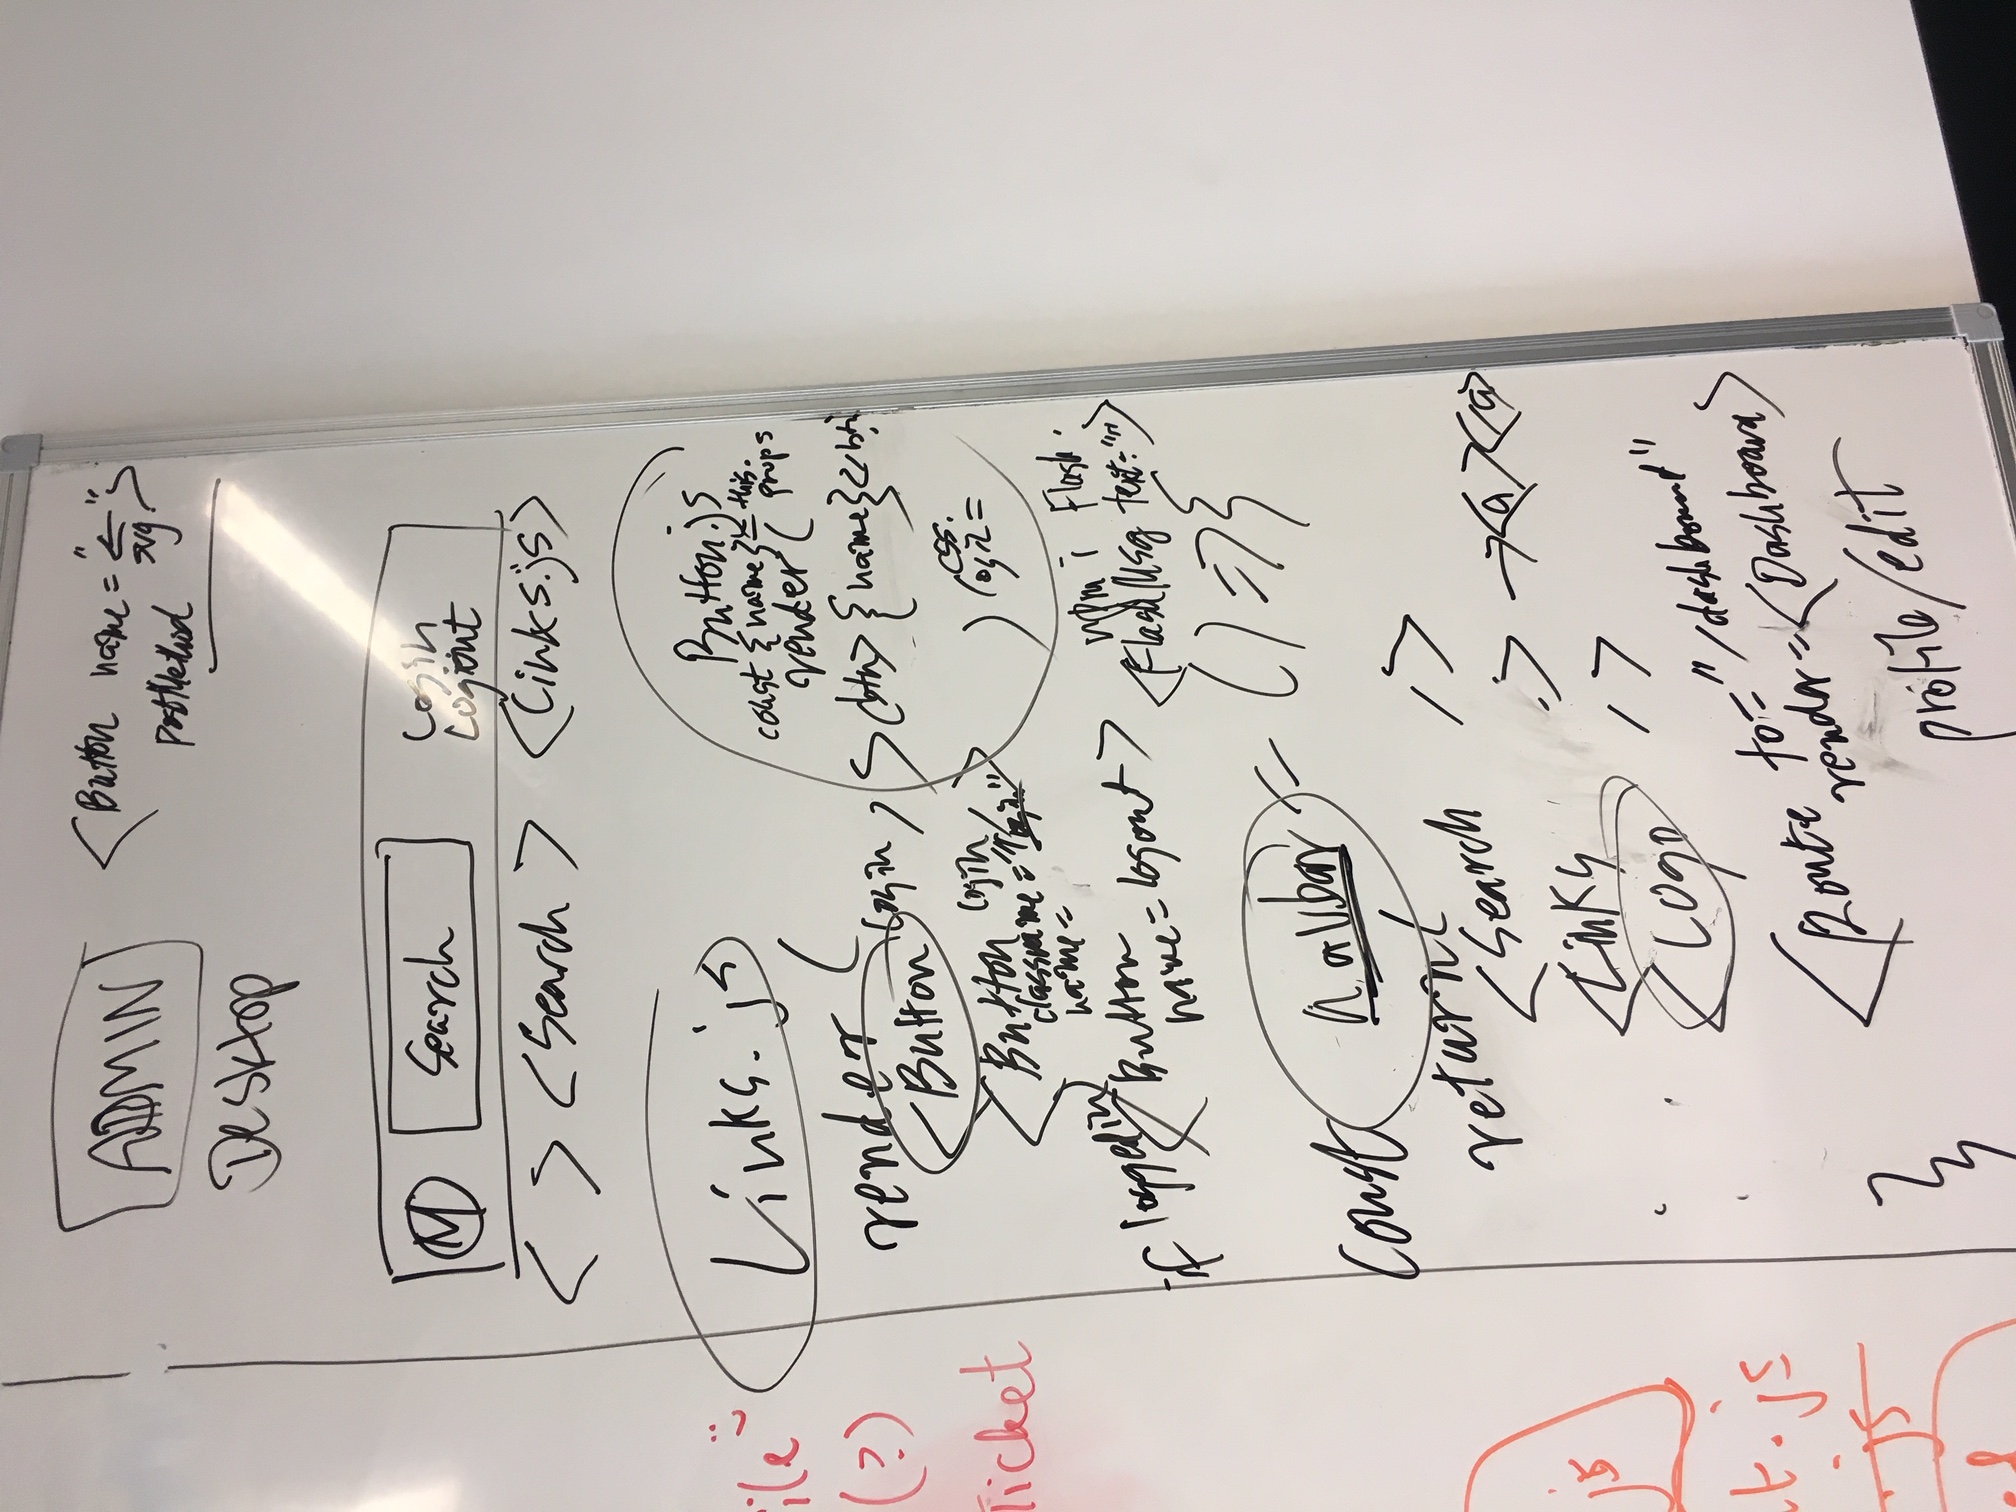 ADMIN
Desktop
<Button name="←">
svg
PostMethod
M Search Login
Logout
< > <Search > <Links.js>
Links.js
render (
<Button Login />
<Button Login
classname=" ">
name=
if loggedin
<Button
name=logout>
Button.js
const {name} = this.
props
render (
<btn> {name} </btn
) css.
login=
npm i Flash.
<FlashMsg text="">
Const navbar = () => {
return (
<Search />
<Links /> → <a></a>
<Logo />
<Route to="/dashboard"
render=<Dashboard>
profile/edit
ile"
(?)
Ticket
js
t.js
.js
ed